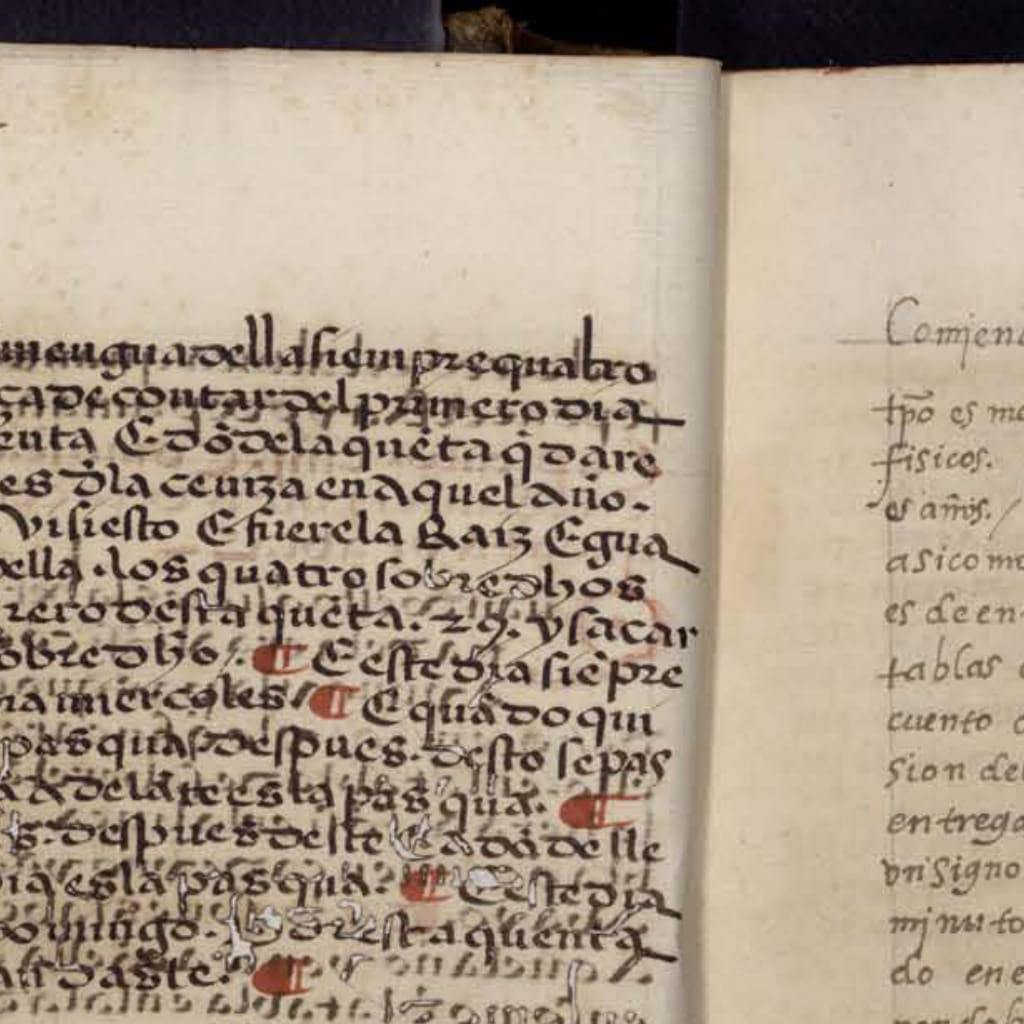 mengua della siempre quatro
ça de contar del primero dia
enta E dõ de la quẽta q̃ dare
es d̃la ceniza en aquel año.
visiesto E fuere la Raiz Egua
della. los quatro sobredhos
rero desta quẽta. 29. y sacar
obredhõ. ¶ E este dia siẽpre
miercoles ¶ E quãdo qui
pasqua despues. desto se pas
adelãte es la pasqua. ¶
despues deste dõ de lle
dia es la pasqua. ¶ E este dia
domingo. desta quenta
¶
Comjenc
tp̃o es me
fisicos.
es años.
asi como
es de en
tablas
cuento
sion del
entrega
vn signo
mjnuto
do en e